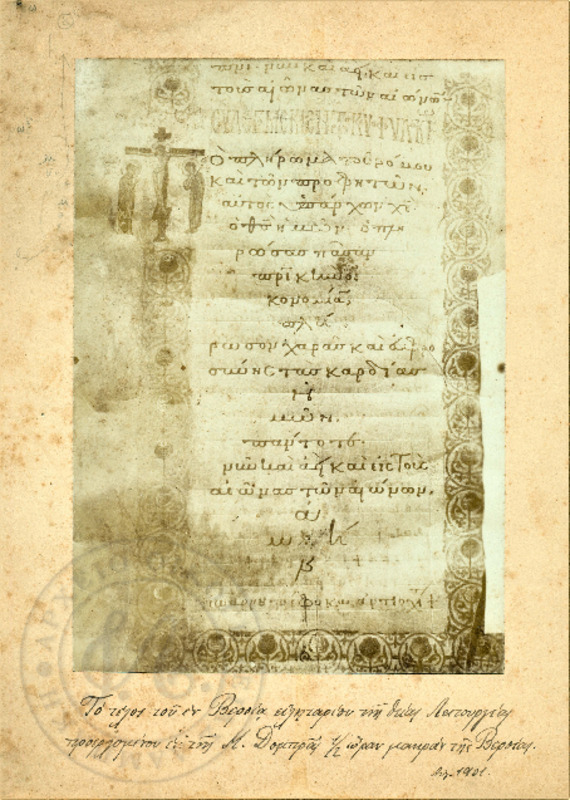 νῦν καὶ ἀεί· καὶ εἰς
τοὺς αἰῶνας τῶν αἰώνω
Ὁ πλήρωμα τοῦ νόμου
καὶ τῶν προφητῶν,
αὐτὸς ὑπάρχων χὲ
ὁ θς ἡμῶν· ὁ πλη
ρώσας πᾶσαν
κονομίαν
πλή
ρωσον χαρᾶς καὶ εὐφρο
σύνης τὰς καρδίας
ἡ
μῶν.
πάντοτε.
νῦν καὶ ἀεὶ καὶ εἰς τοὺς
αἰῶνας τῶν αἰώνων.
ἀ
ΑΡΧΕΙΟ
Τὸ τέλος τοῦ ἐν Βερροίᾳ εἰληταρίου τῆς θείας Λειτουργίας
προερχομένου ἐκ τῆς Μ. Δομπρᾶς ½ ὥραν μακρὰν τῆς Βερροίας.
Αὐγ. 1901.